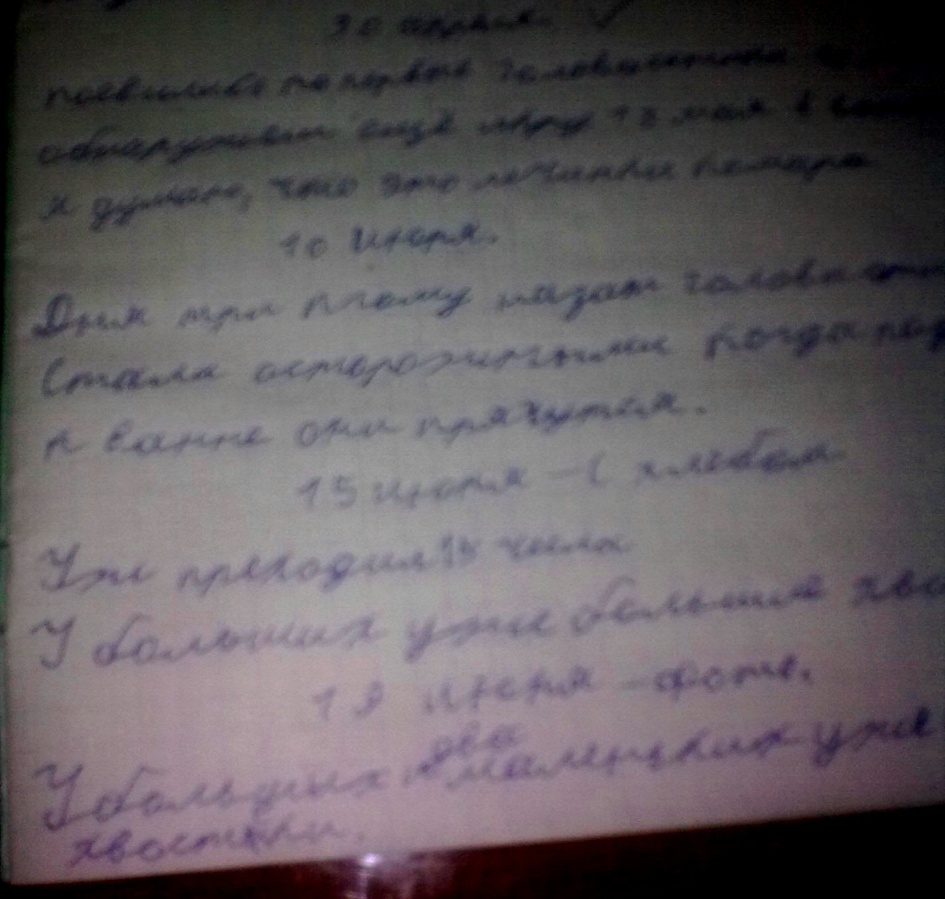 30 апреля.
появились первые головастики
обнаружил ещё икру 13 мая
я думаю, что это личинки комара
10 июня.
Дня три тому назад головасти
Стали осторожными когда под
к ванне они прячутся.
15 июня – С хлебом
Уже преходил
У больших уже большие хво
19 июня – фото.
У больших два маленьких уже
хвостики.